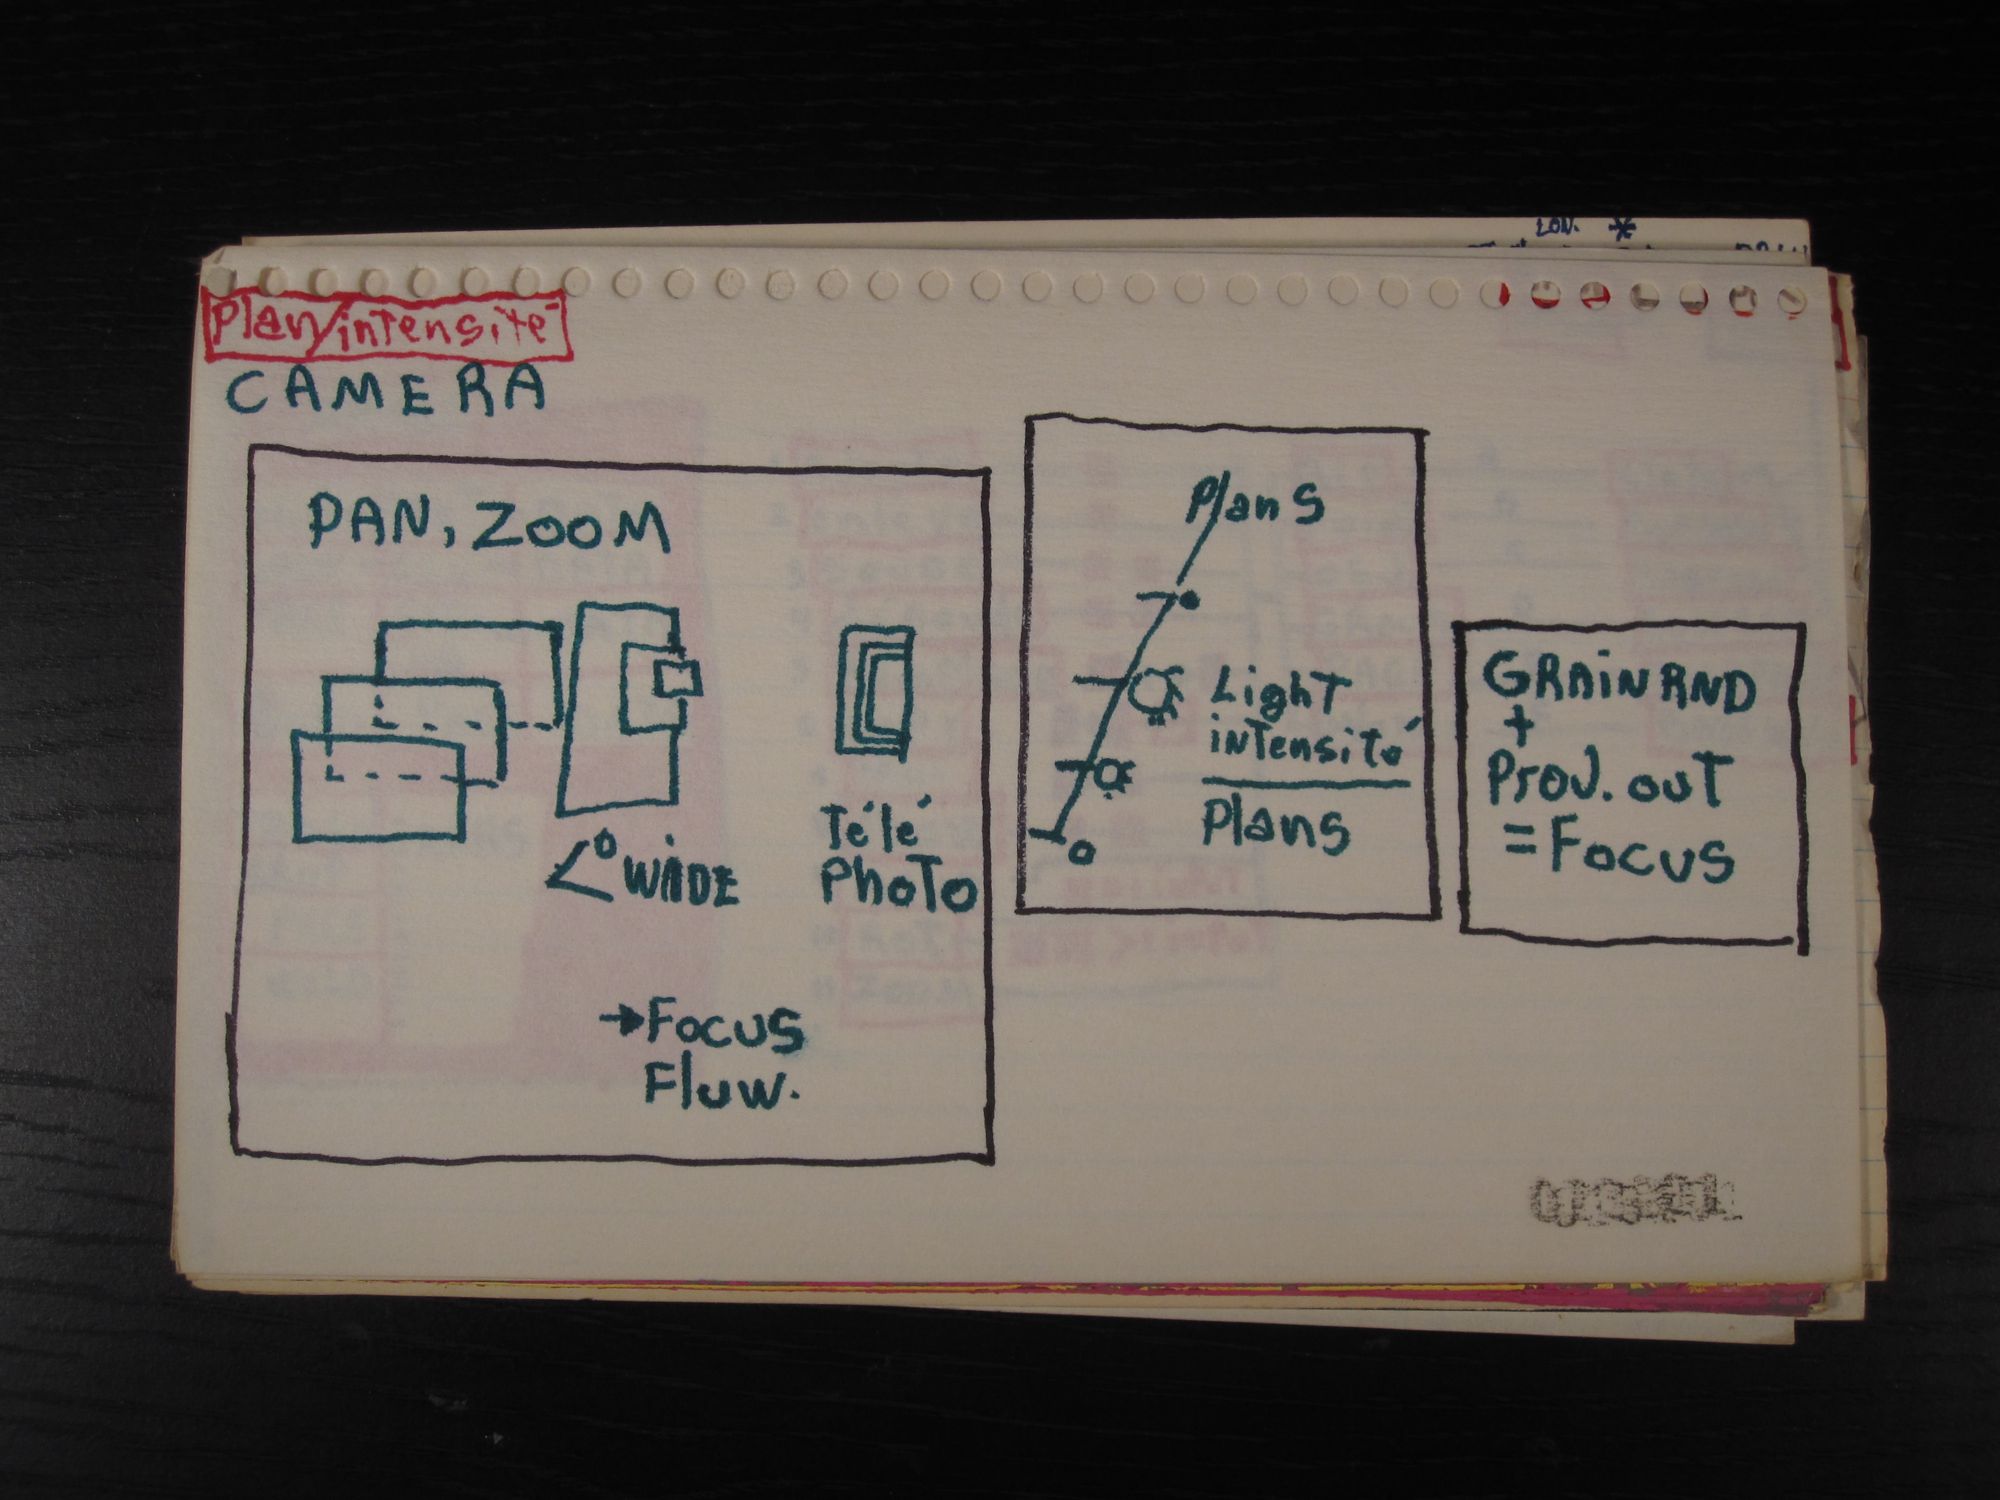 Plan/intensité
CAMERA
PAN, ZOOM
< WIDE
Télé
Photo
→Focus
Fluw.
Plans
Light
intensité
Plans
GRAINRND
+
Prov. out
= Focus